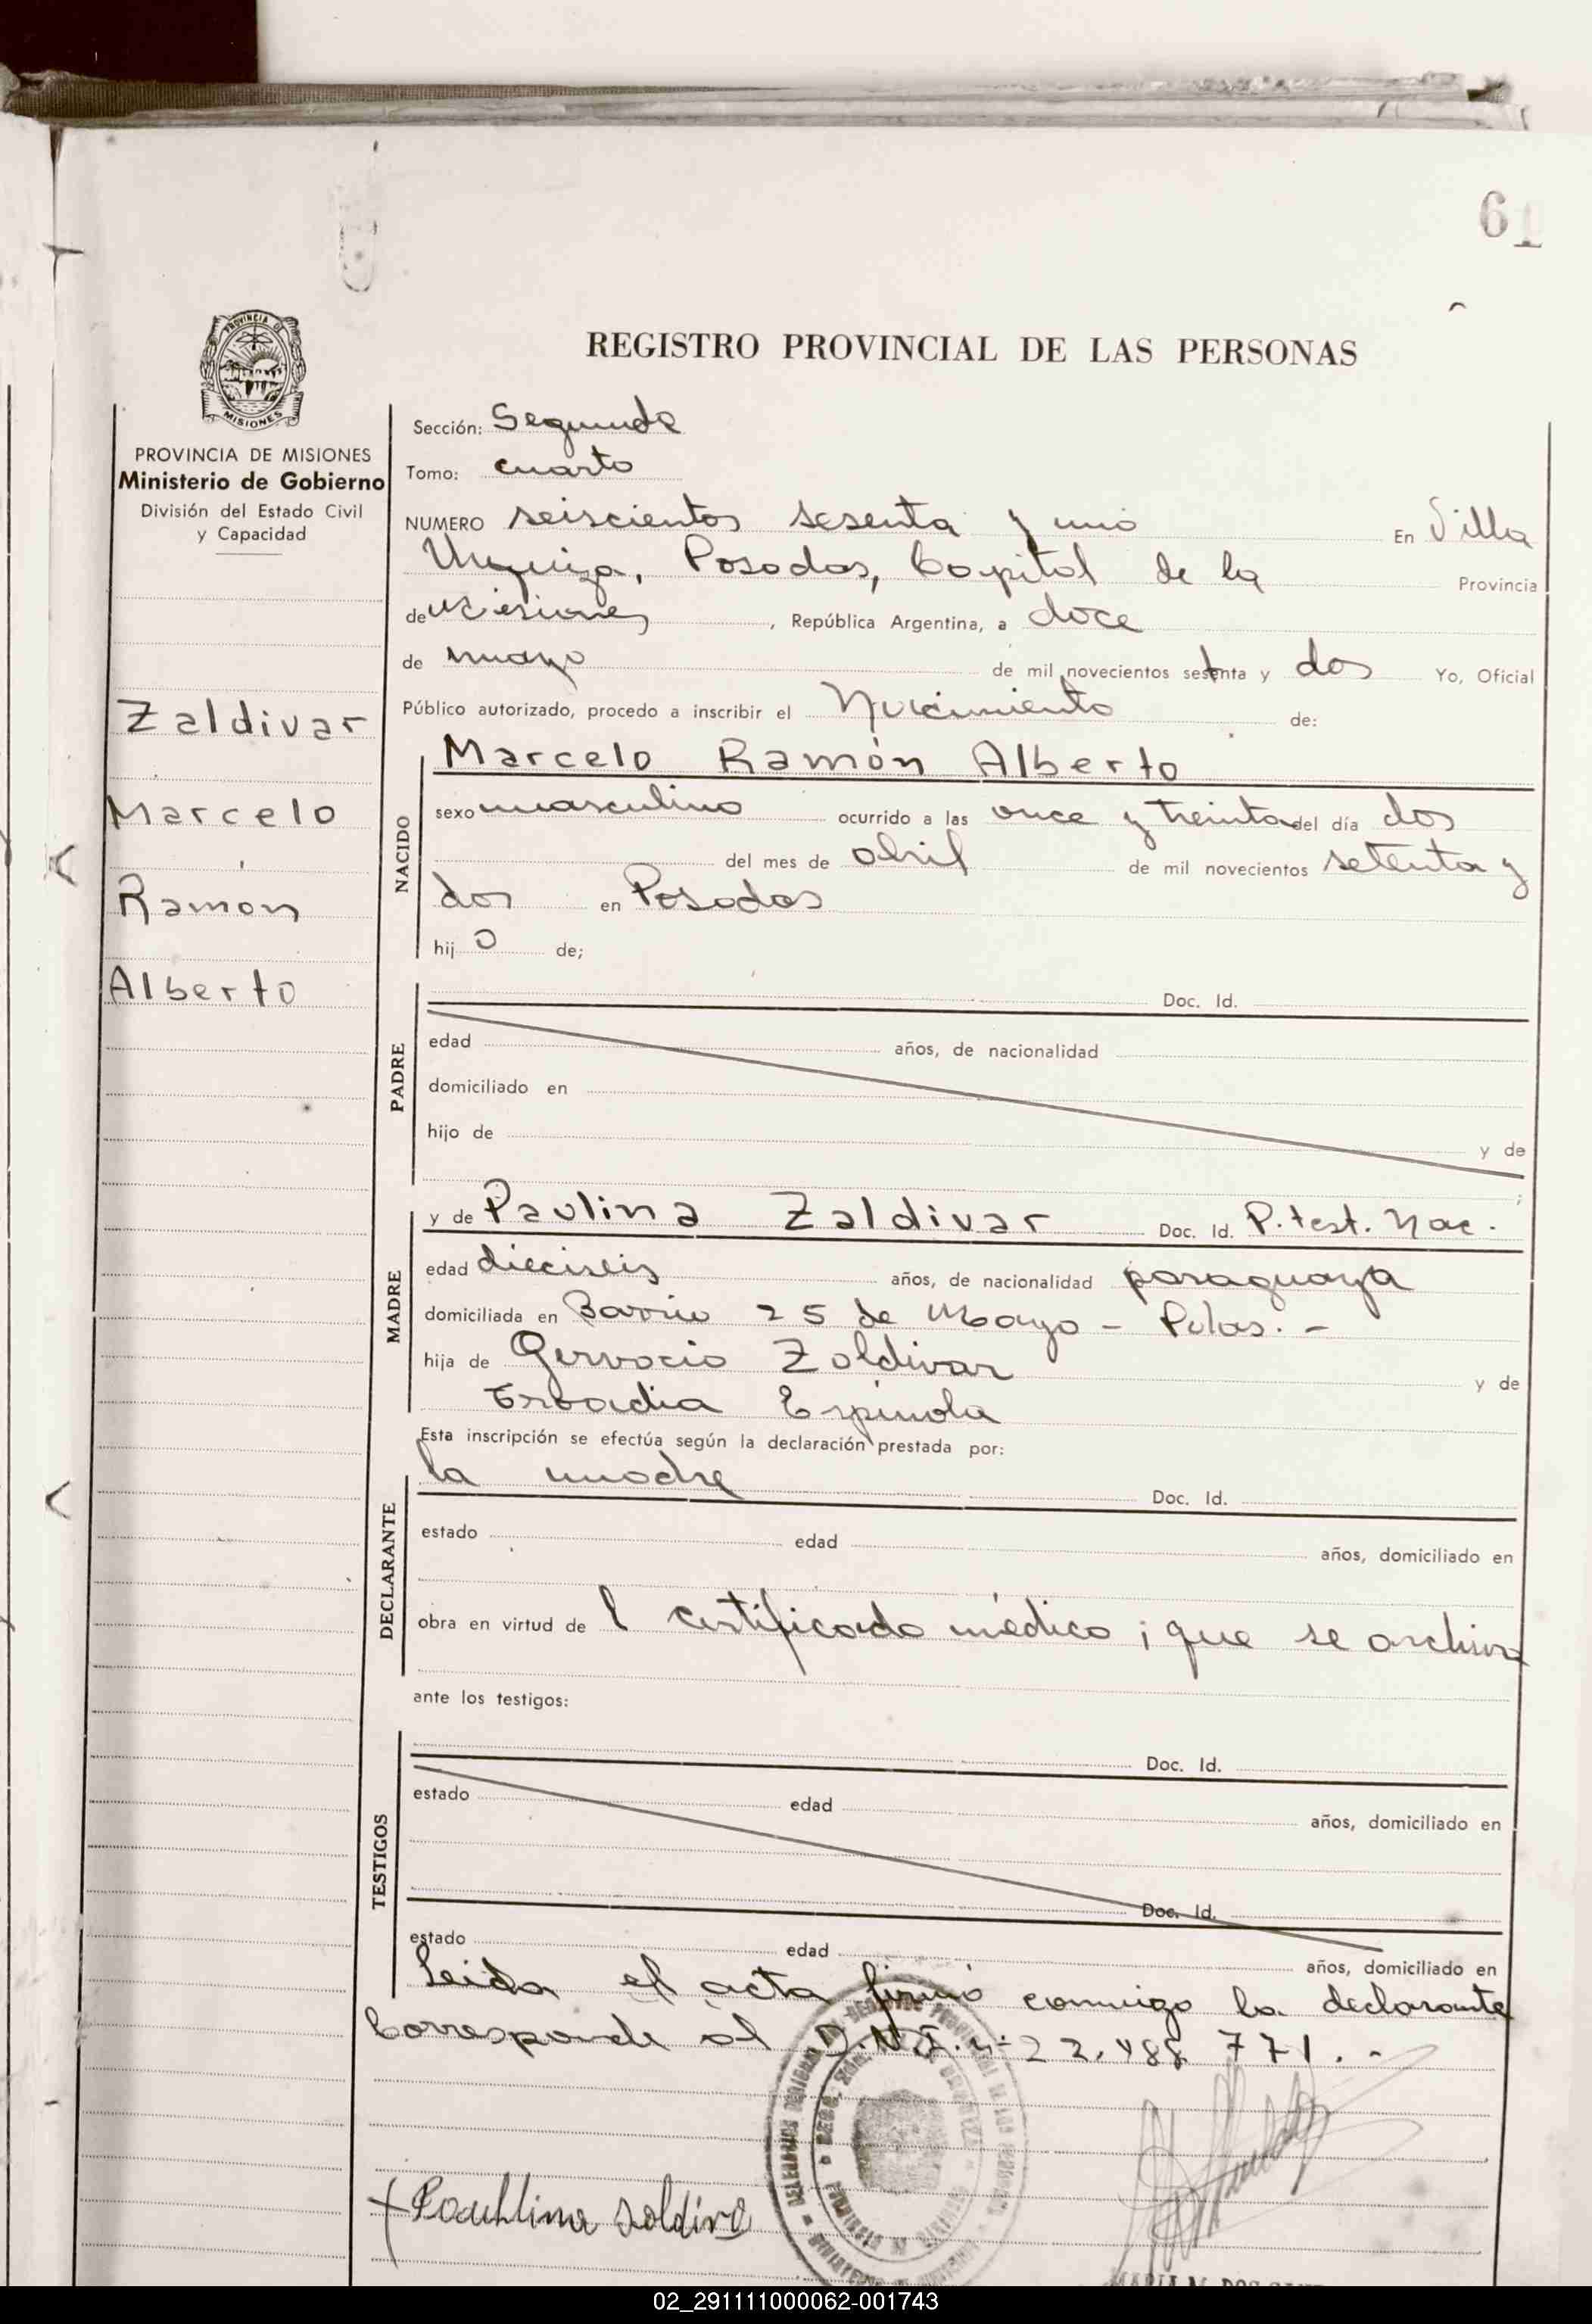 61
REGISTRO PROVINCIAL DE LAS PERSONAS
PROVINCIA DE MISIONES
PROVINCIA DE MISIONES
Ministerio de Gobierno
División del Estado Civil
y Capacidad
Zaldivar
Marcelo
Ramón
Alberto
Sección: Segunda
Tomo: cuarto
NUMERO seiscientos sesenta y uno En Villa
Urquiza, Posadas, Capital de la Provincia
de Misiones, República Argentina, a doce
de mayo de mil novecientos setenta y dos Yo, Oficial
Público autorizado, procedo a inscribir el Nacimiento de:
NACIDO
Marcelo Ramón Alberto
sexo masculino ocurrido a las once y treinta del día dos
del mes de abril de mil novecientos setenta y
dos en Posadas
hij o de;
PADRE
Doc. Id.
edad años, de nacionalidad
domiciliado en
hijo de y de
;
MADRE
y de Paulina Zaldivar Doc. Id. P. test. Nac.
edad dieciseis años, de nacionalidad paraguaya
domiciliada en Barrio 25 de Mayo - Pdas. -
hija de Gervacio Zaldivar y de
Espinola
Esta inscripción se efectúa según la declaración prestada por:
DECLARANTE
la madre Doc. Id.
estado edad años, domiciliado en
obra en virtud de l certificado médico ; que se archiva
ante los testigos:
TESTIGOS
Doc. Id.
estado edad años, domiciliado en
Doc. Id.
estado edad años, domiciliado en
Leida el acta firmó conmigo la declarante
Corresponde al D.N.I. nº 22.488 771. -
Soldiva
02_291111000062-001743